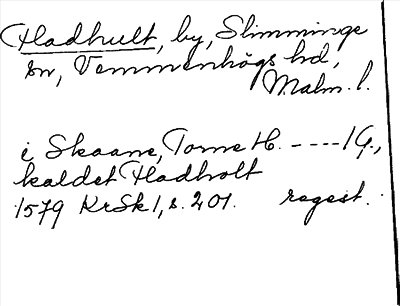 Hadhult, by, Slimminge
sn, Vemmenhögs hd,
Malm. l.
i Skaane, Torne H. ----1 G.,
kaldet Hadholt
1579 KrSk 1, s. 201. regest.